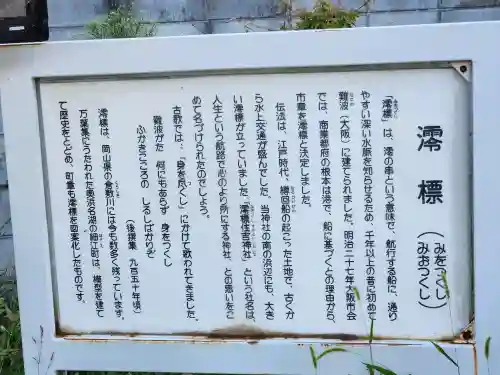 澪標(みをつくし みおつくし)
「澪標」は、澪の串という意味で、航行する船に、通り
やすい深い水脈を知らせるため、千年以上の昔に初めて
難波(大阪)に建てられました。明治二十七年大阪市会
では、商業都府の根本は港で、船に基づくとの理由から、
市章を澪標と決定しました。
伝法は、江戸時代、樽廻船の起こった土地で、古くか
ら水上交通が盛んでした。当神社の南の浜辺にも、大き
い澪標が立っていました。「澪標住吉神社」という社名は、
人生という航路で心のより所にする神社、との思いをこ
めて名づけられたのでしょう。
古歌では…「身を尽くし」にかけて歌われてきました。
難波がた 何にもあらず 身をつくし
ふかきこころの しるしばかりぞ
(後撰集 九百五十年頃)
澪標は、岡山県の倉敷川には今も数多く残っています。
万葉集にうたわれた奥浜名湖の細江町は、模型を建て
て歴史をとどめ、町章も澪標を図案化したものです。